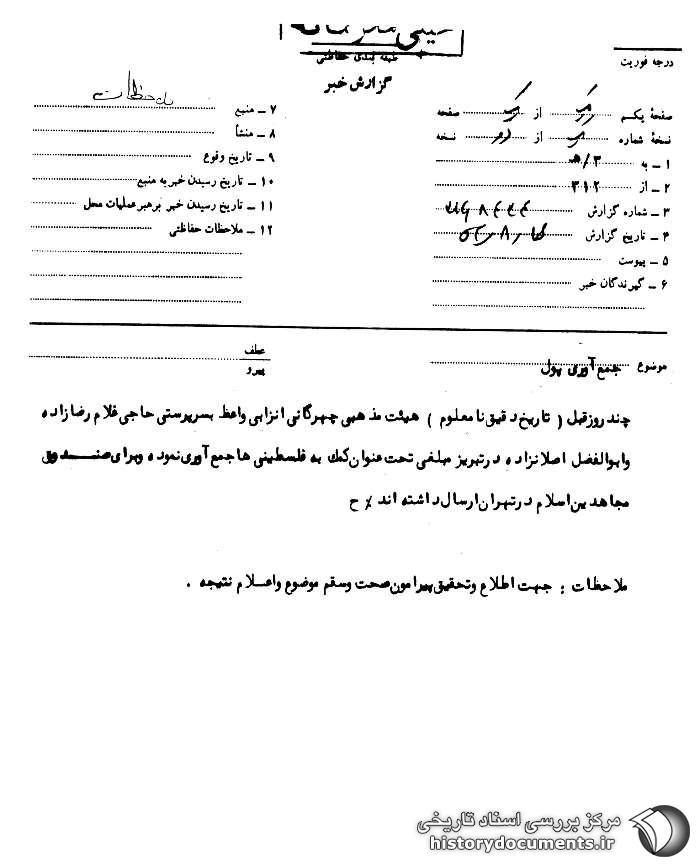 خیلی محرمانه
طبقه بندی حفاظتی
گزارش خبر
درجه فوریت
صفحهٔ یکم از صفحه
نسخهٔ شماره از نسخه
۱ ـ به ۳/هـ
۲ ـ از ۳۱۲
۳ ـ شماره گزارش
۴ ـ تاریخ گزارش
۵ ـ پیوست
۶ ـ گیرندگان خبر
۷ ـ منبع ملاحظات
۸ ـ منشأ
۹ ـ تاریخ وقوع
۱۰ ـ تاریخ رسیدن خبر به منبع
۱۱ ـ تاریخ رسیدن خبر برهبر عملیات محل
۱۲ ـ ملاحظات حفاظتی
موضوع جمع آوری پول
عطف
پیرو
چند روز قبل ( تاریخ دقیق نامعلوم ) هیئت مذهبی چهرگانی انزابی واعظ بسرپرستی حاجی غلام رضا زاده
وابوالفضل اصلانزاده درتبریز مبلغی تحت عنوان کمک به فلسطینی ها جمع آوری نموده وبرای صنـــدوق
مجاهدین اسلام درتهران ارسال داشته اند ٪ ح
ملاحظات : جهت اطلاع وتحقیق پیرامون صحت وسقم موضوع واعلام نتیجه .
مرکز بررسی اسناد تاریخی
historydocuments.ir